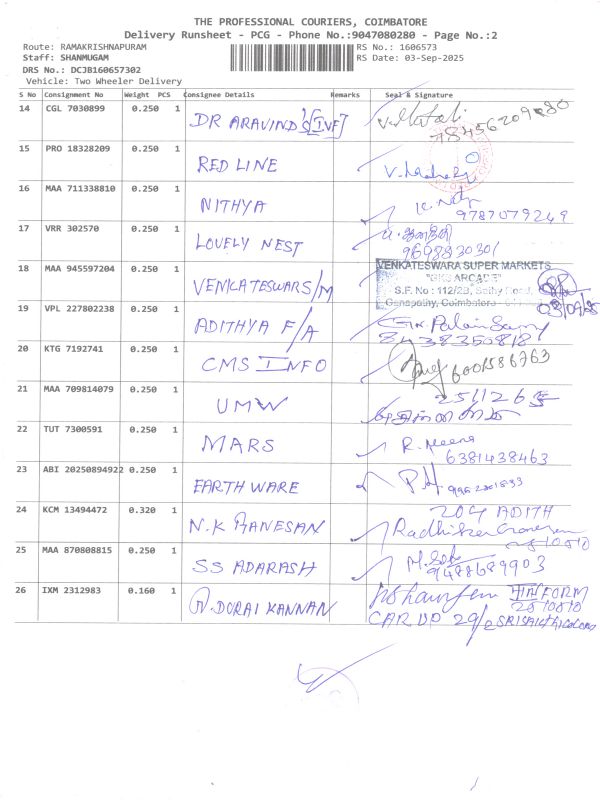 THE PROFESSIONAL COURIERS, COIMBATORE
Delivery Runsheet - PCG - Phone No.:9047080280 - Page No.:2
Route: RAMAKRISHNAPURAM RS No.: 1606573
Staff: SHANMUGAM RS Date: 03-Sep-2025
DRS No.: DCJB160657302
Vehicle: Two Wheeler Delivery
S No Consignment No Weight PCS Consignee Details Remarks Seal & Signature
14 CGL 7030899 0.250 1 DR ARAVIND'S [IVF]
15 PRO 18328209 0.250 1 RED LINE
16 MAA 711338810 0.250 1 NITHYA
9787079249
17 VRR 302570 0.250 1 LOVELY NEST
9698830301
18 MAA 945597204 0.250 1 VENKATESWARS/M VENKATESWARA SUPER MARKETS
S.F. No : 112/2B, Sathy Road,
Ganapathy, Coimbatore
03/09/25
19 VPL 227802238 0.250 1 ADITHYA F/A
8438350818
20 KTG 7192741 0.250 1 CMS INFO 6001586763
21 MAA 709814079 0.250 1 UMW
22 TUT 7300591 0.250 1 MARS R. Meena
6381438463
23 ABI 20250894922 0.250 1 EARTH WARE
24 KCM 13494472 0.320 1 N.K GANESAN 204 ADITH
25 MAA 870808815 0.250 1 SS ADARASH
9488689903
26 IXM 2312983 0.160 1 DORAI KANNAN